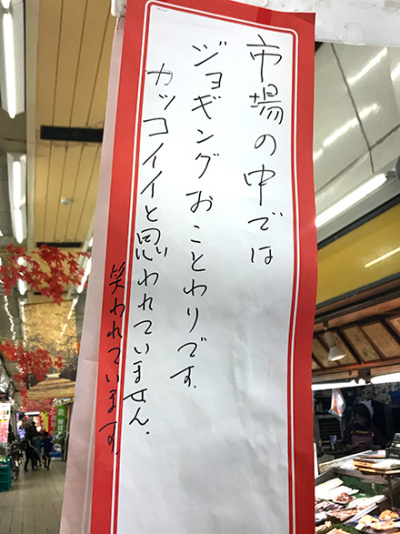 市場の中では
ジョギングおことわりです.
カッコイイと思われていません.
笑われています.